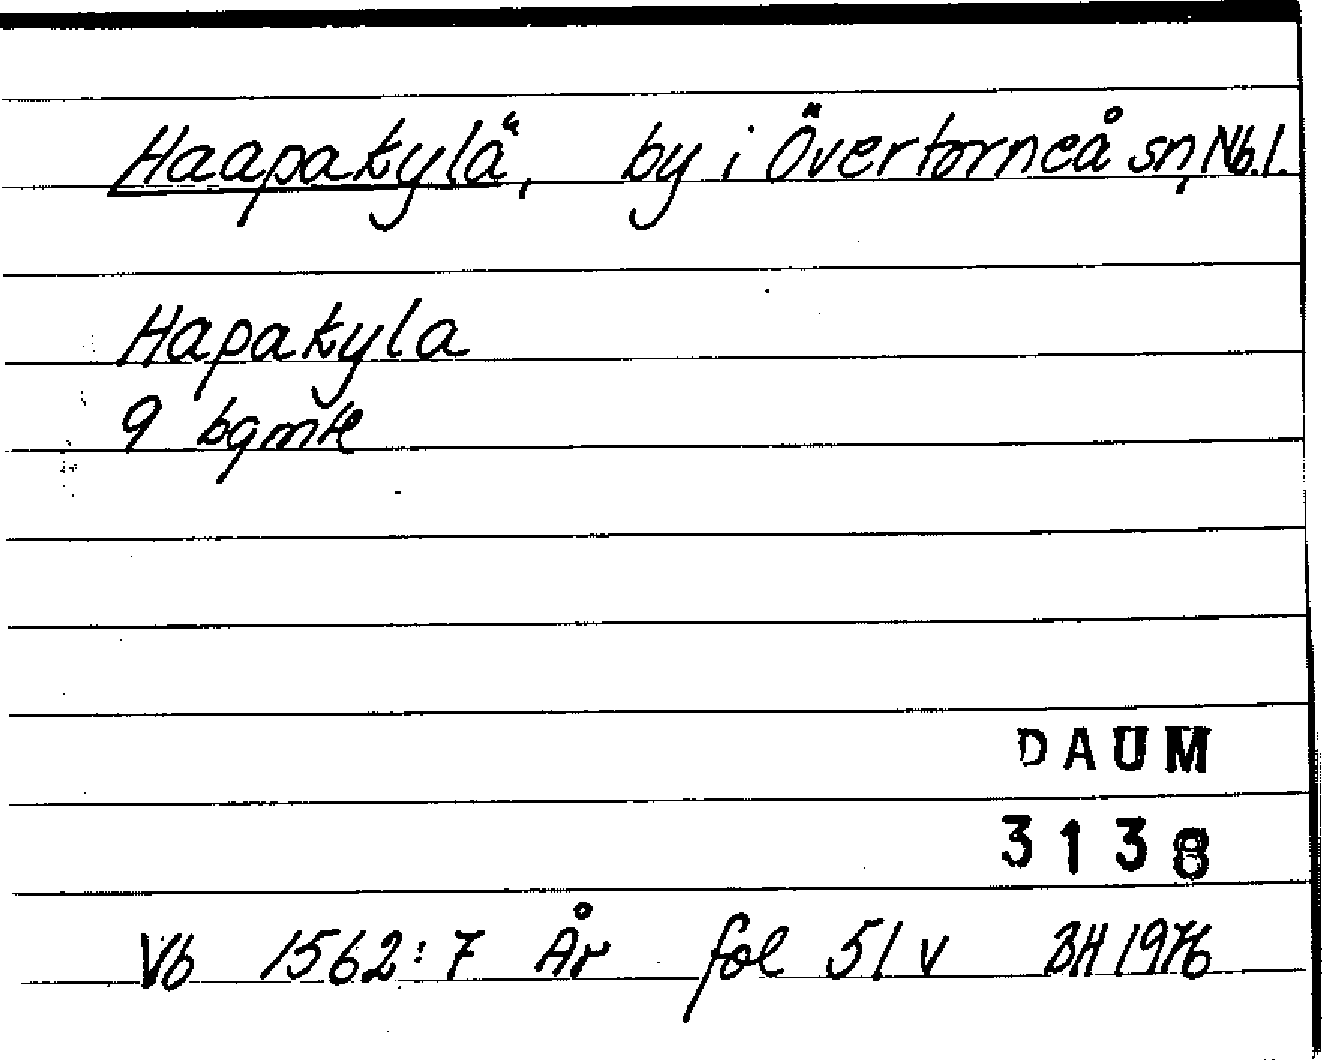 Haapakylä, by i Övertorneå sn, Nb.l.
Hapakyla
9 bgmk
DAUM
3138
Vb 1562:7 År fol 51 v BH 1976